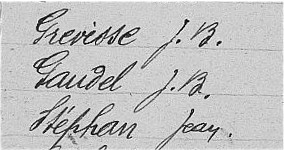 Grevisse J.B.
Gaudel J.B.
Stéphan Jean.